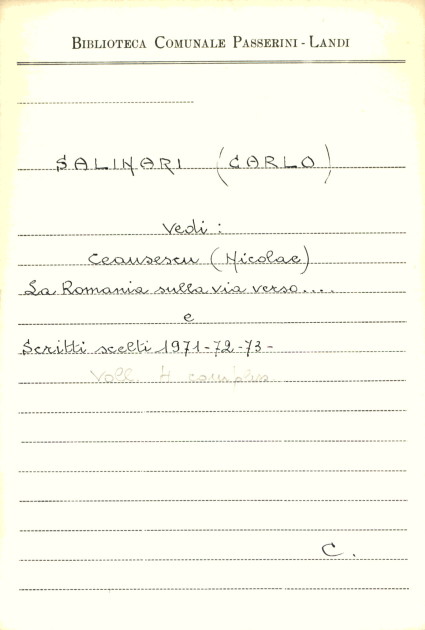 BIBLIOTECA COMUNALE PASSERINI - LANDI
SALINARI (CARLO)
Vedi :
Ceausescu (Nicolae)
La Romania sulla via verso....
e
Scritti scelti 1971-72-73-
Voll. 4
C.